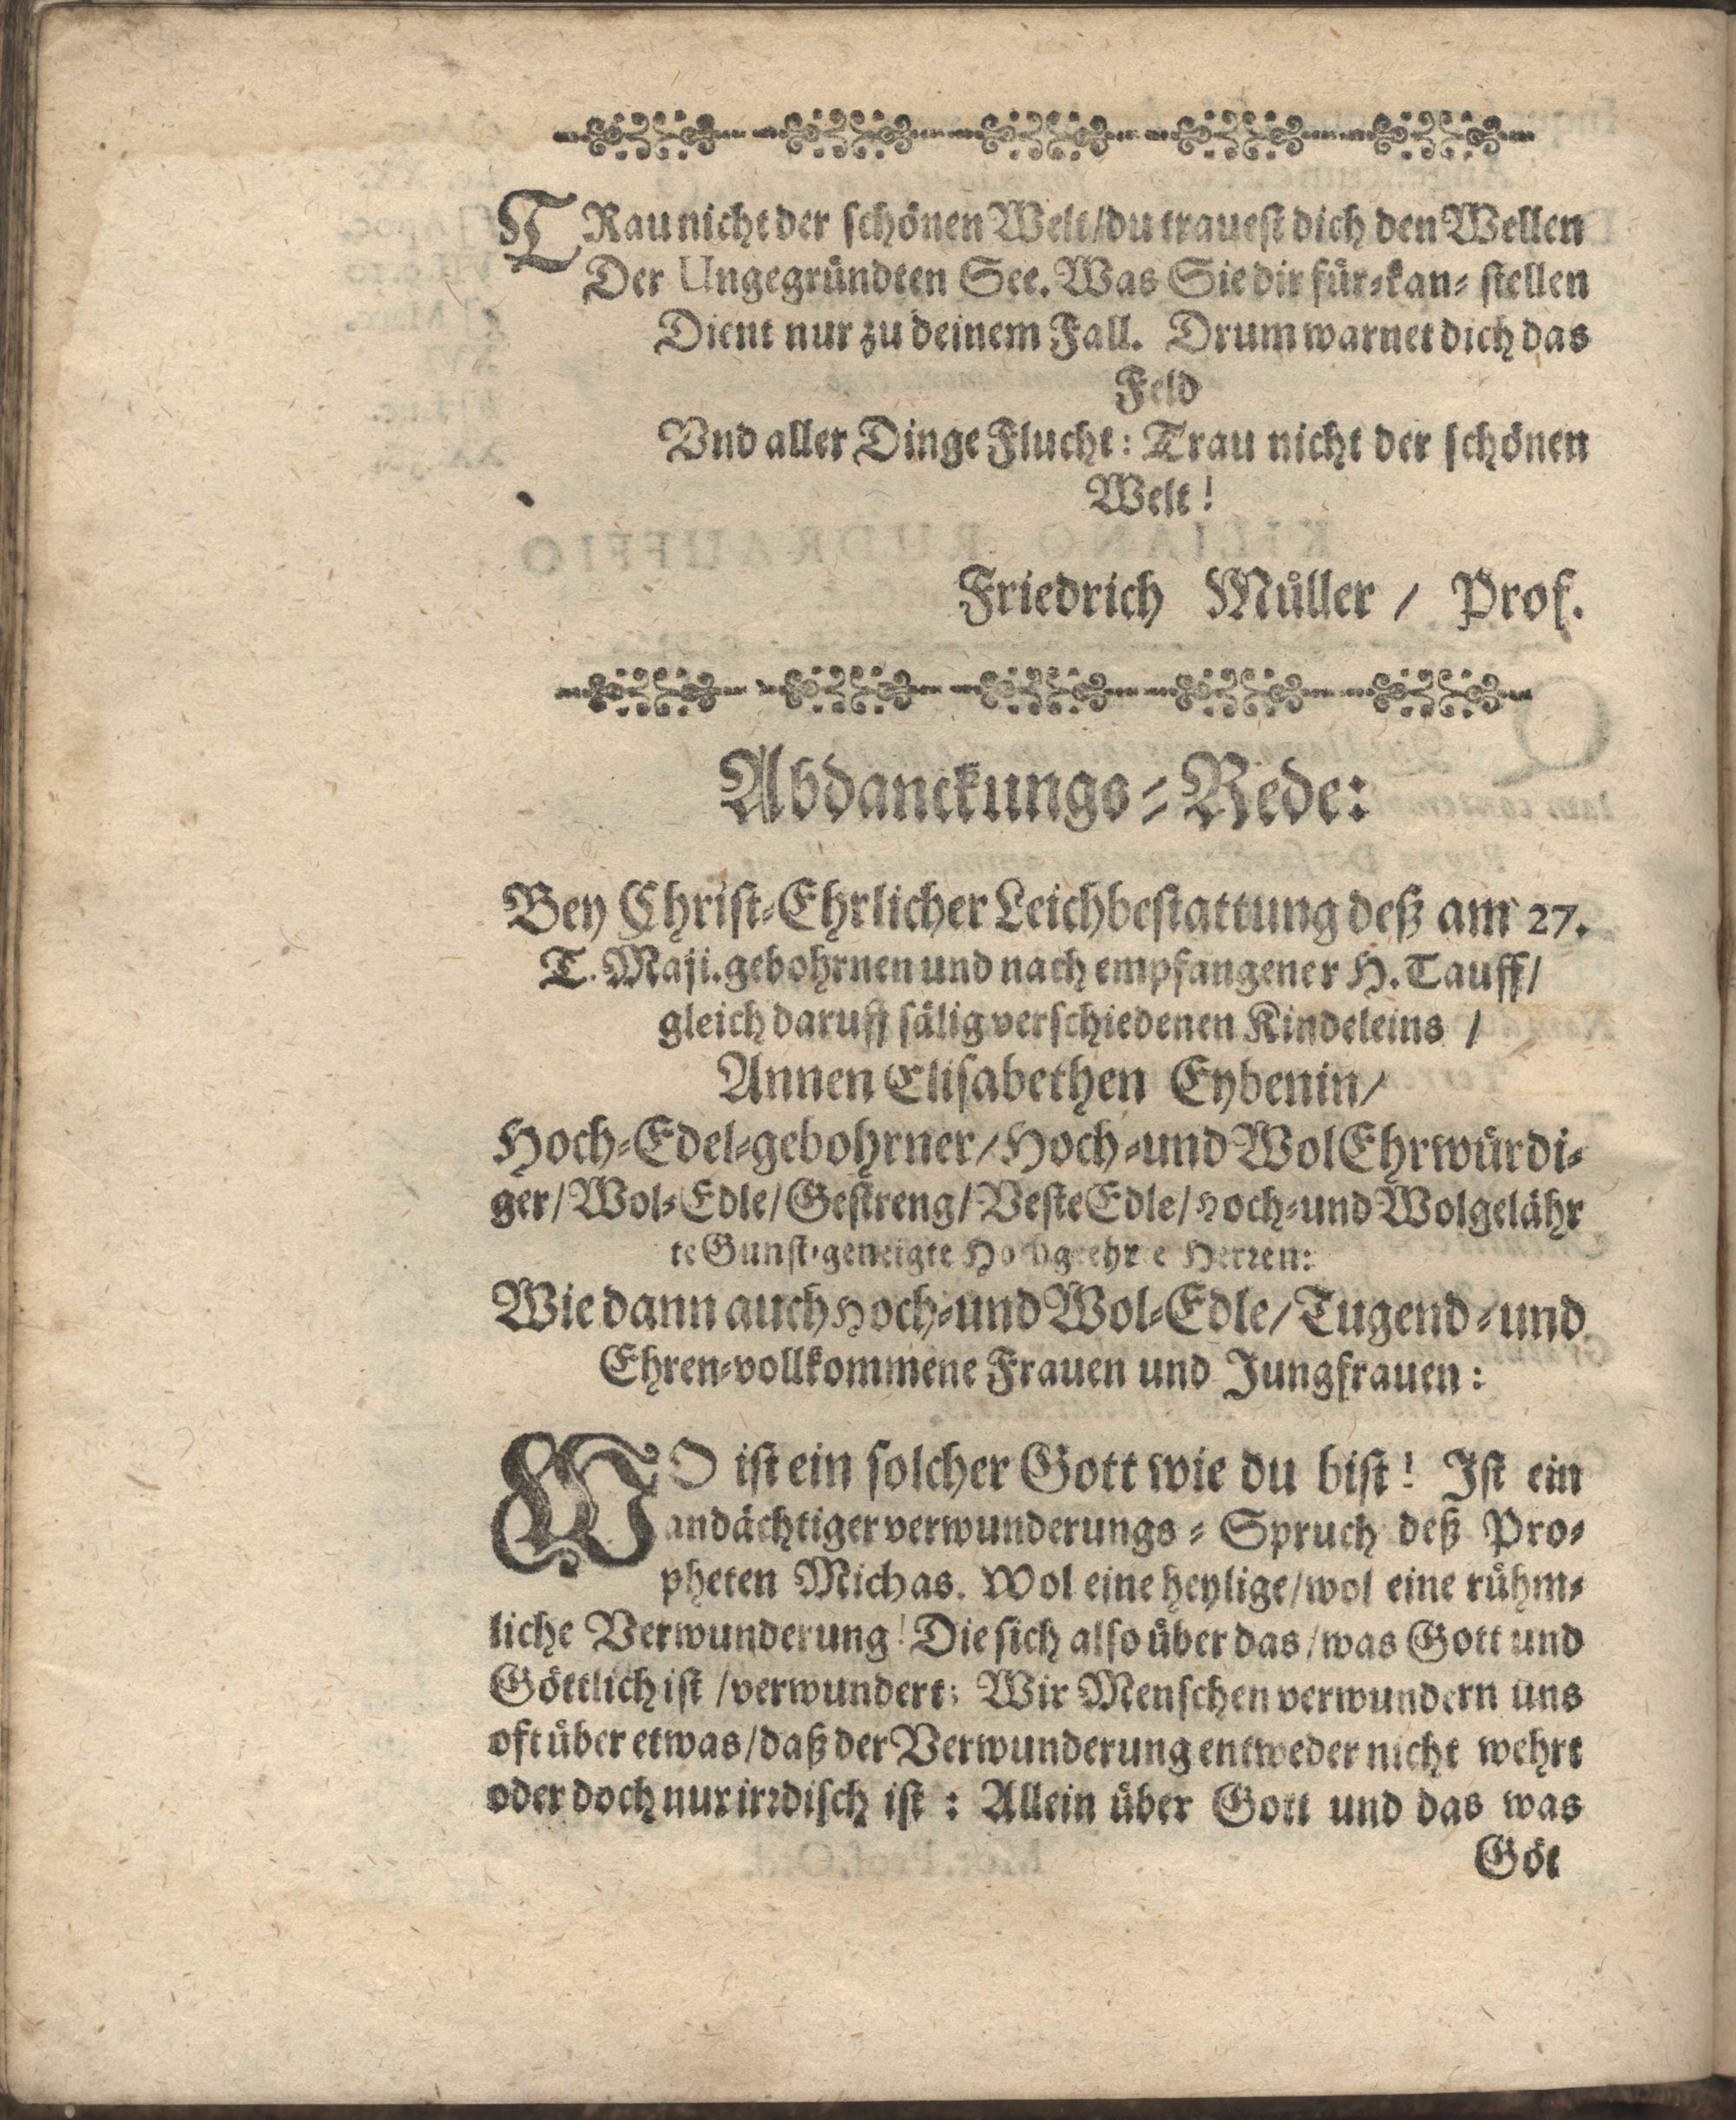 TRau nicht der schönen Welt/du trauest dich den Wellen
Der Ungegründten See. Was Sie dir für-kan- stellen
Dient nur zu deinem Fall. Drum warnet dich das
Feld
Vnd aller Dinge Flucht: Trau nicht der schönen
Welt!
Friedrich Müller / Prof.
Abdanckungs-Rede:
Bey Christ-Ehrlicher Leichbestattung deß am 27.
T. Maji. gebohrnen und nach empfangener H. Tauff/
gleich daruff sälig verschiedenen Kindeleins /
Annen Elisabethen Eybenin/
Hoch-Edel-gebohrner/Hoch-und WolEhrwürdi-
ger/Wol-Edle/Gestreng/Veste Edle/Hoch-und Wolgelähr
te Gunst-geneigte Herren:
Wie dann auch Hoch-und Wol-Edle/Tugend-und
Ehren-vollkommene Frauen und Jungfrauen:
WO ist ein solcher Gott wie du bist! Ist ein
andächtiger verwunderungs-Spruch deß Pro-
pheten Michas. Wol eine heylige/wol eine rühm-
liche Verwunderung! Die sich also über das/was Gott und
Göttlich ist /verwundert; Wir Menschen verwundern uns
oft über etwas/daß der Verwunderung entweder nicht wehrt
oder doch nur irrdisch ist : Allein über Gott und das was
Göt